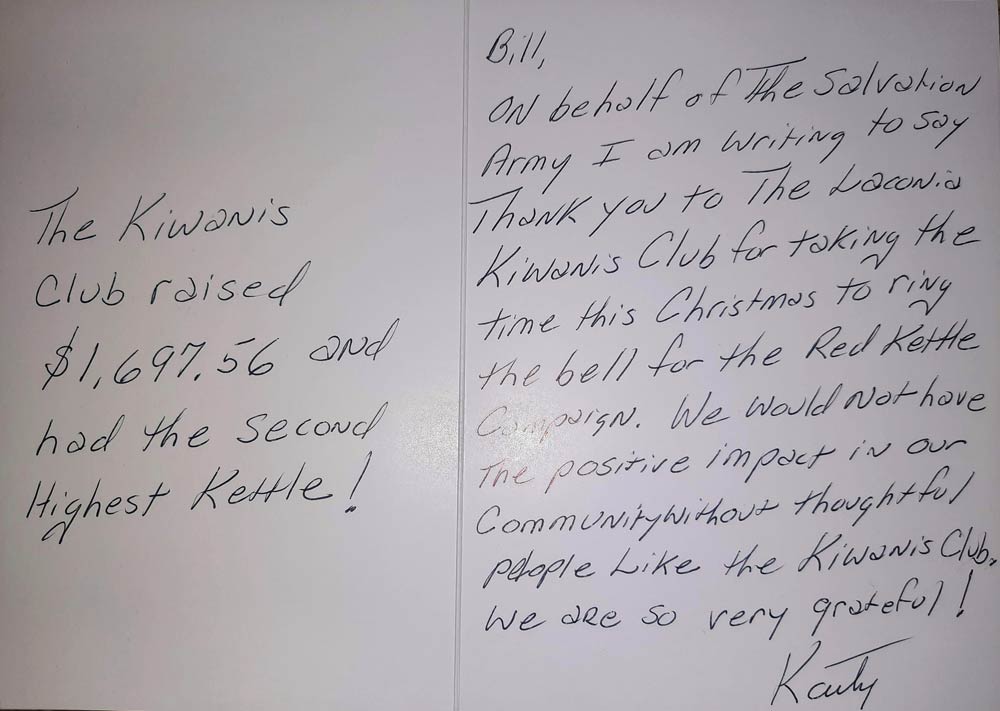 The Kiwanis
Club raised
$1,697.56 and
had the second
Highest Kettle!
Bill,
ON behalf of The Salvation
Army I am writing to say
Thank you to The Laconia
Kiwanis Club for taking the
time this Christmas to ring
the bell for the Red Kettle
Campaign. We would not have
The positive impact in our
Community without thoughtful
people Like the Kiwanis Club.
We are so very grateful!